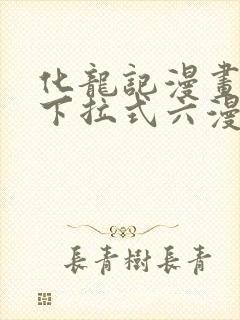 化龍記漫畫
下拉式六漫
長青樹長青